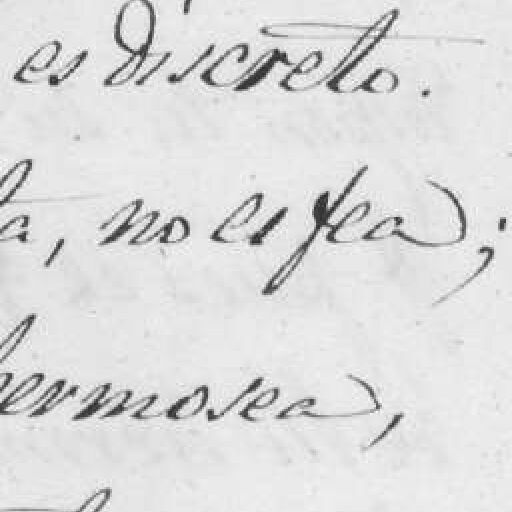 es discreto.
ta, no es fea;
hermosea,